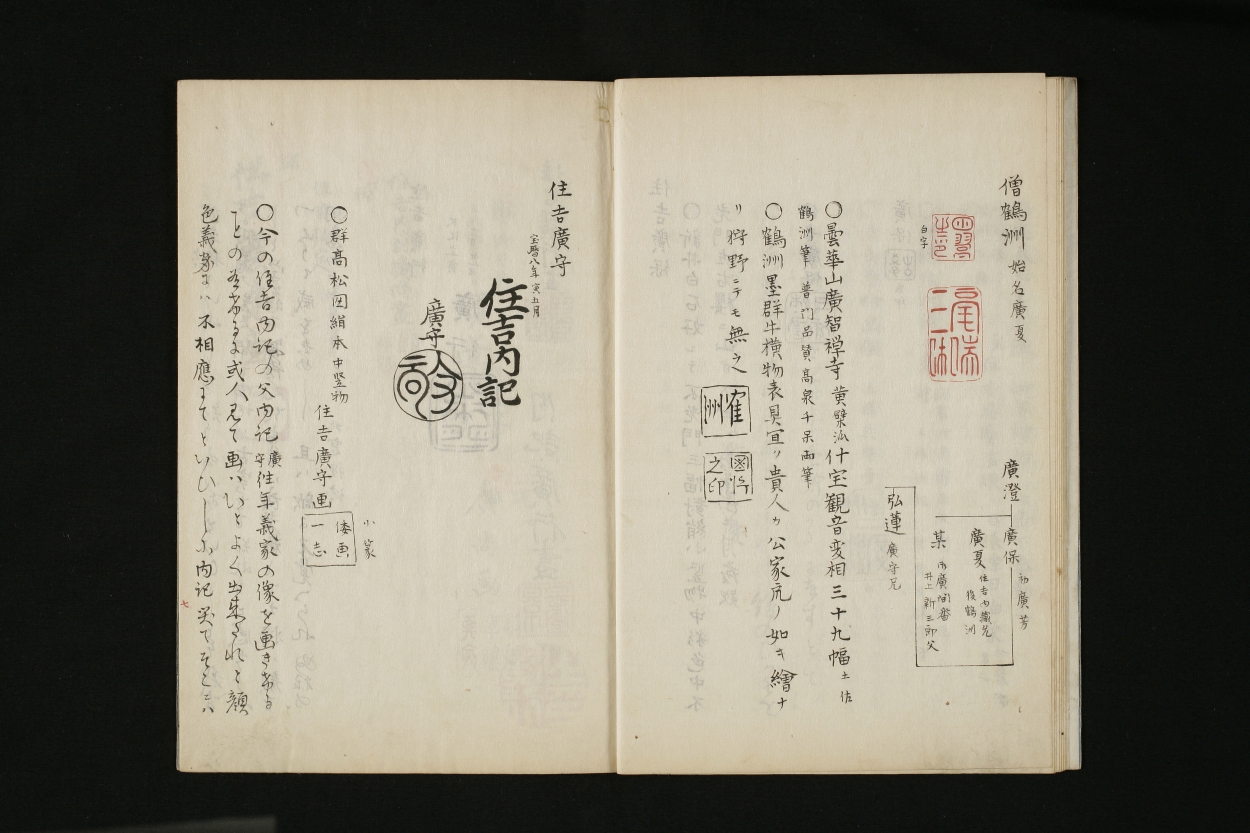 僧鶴洲 始名廣夏
白字
廣澄
廣保 初廣芳
廣夏 住吉内蔵允 後鶴洲
某 御廣間番 井上新三郎父
弘蓮 廣守兄
〇曇華山廣智禅寺黄檗派什宝観音変相三十九幅土佐
鶴洲筆 普門品賛高泉千呆両筆
〇鶴洲墨群牛横物表具宜ク貴人カ公家流ノ如キ繪ナ
リ狩野ニテモ無之
洲
之印
住吉廣守
宝暦八年寅五月
住吉内記
廣守
〇群髙松図絹本中竪物
住吉廣守画
倭画
一志
小冢
〇今の住吉内記の父内記廣守往年義家の像を画きける
ことの有けるに或人見て画ハいとよく出来たれと顔
色義家にハ不相應にてといひしに内記笑てそこハ
七